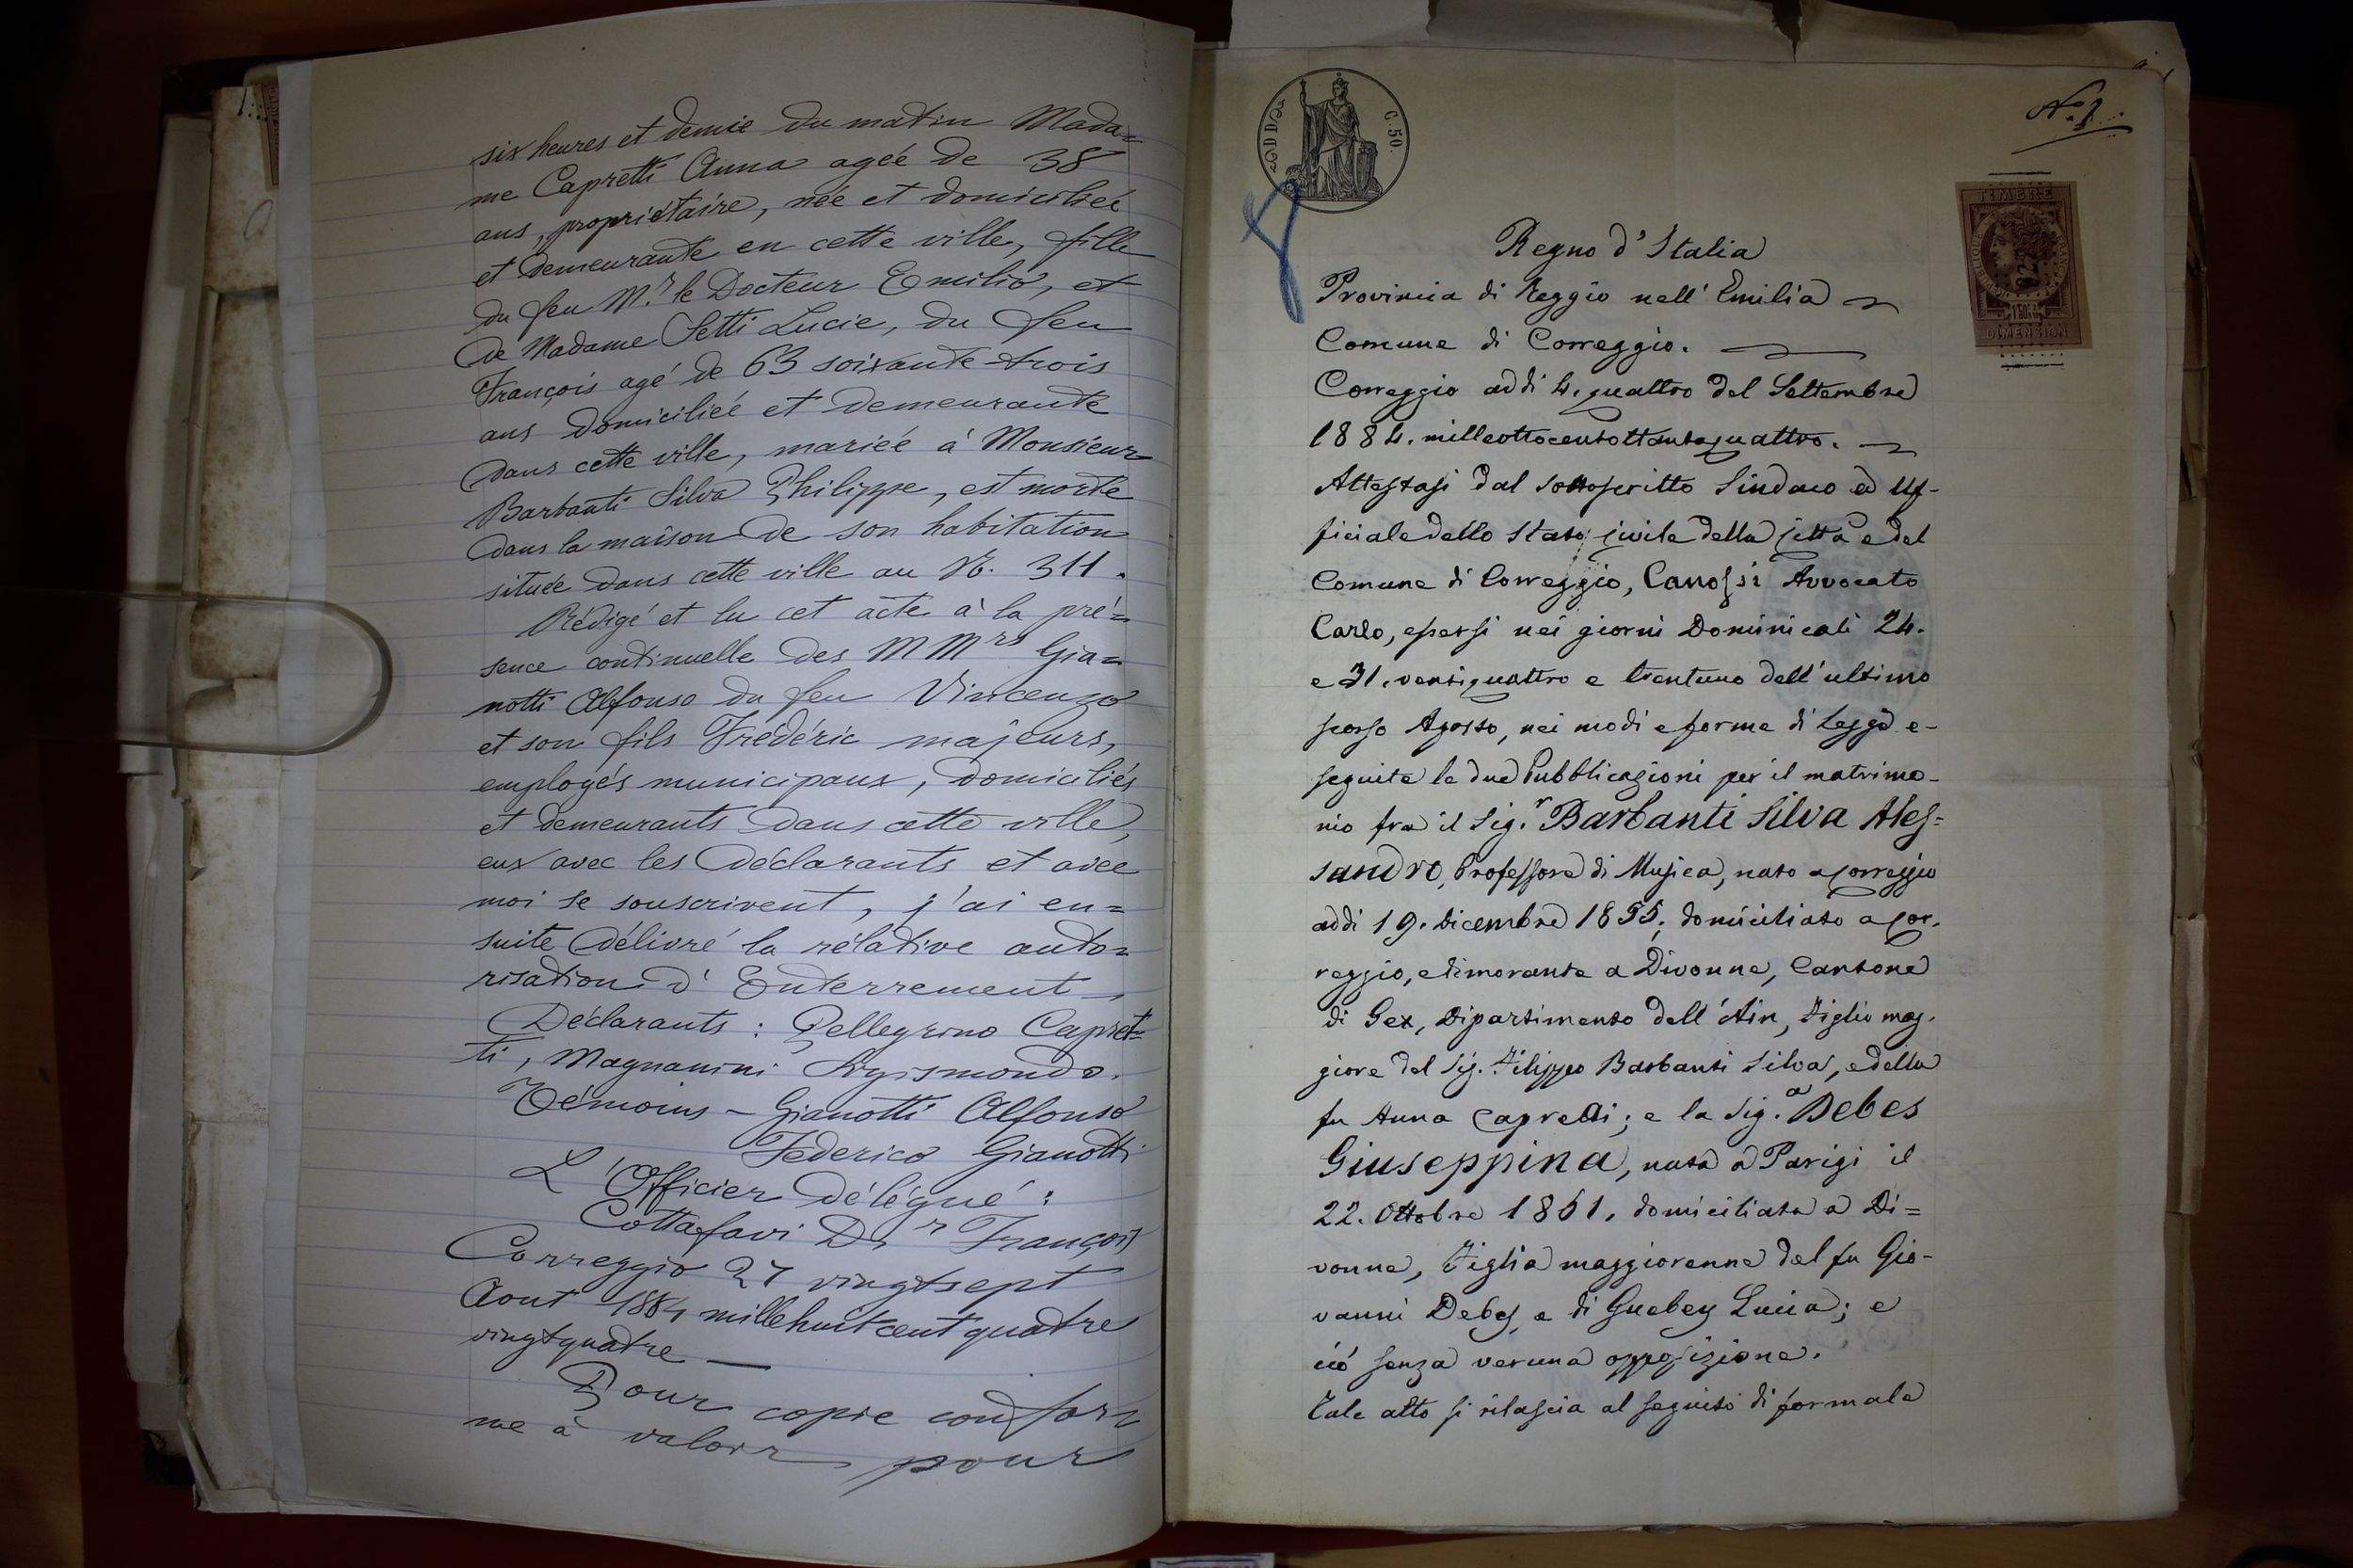 six heures et demie du matin Mada=
me Capretti Anna agée de 38
ans, propriétaire, née et domiciliée
et demeurante en cette ville, fille
du feu M.r le Docteur Emilio, et
de Madame Setti Lucie, du feu
François agé de 63 soixante-trois
ans domiciliée et demeurante
dans cette ville, mariée à Monsieur
Barbanti Silva Philippe, est morte
dans la maison de son habitation
située dans cette ville au N. 311.
Rédigé et lu cet acte à la pré=
sence continuelle des MMrs Gia=
notti Alfonso du feu Vincenzo
et son fils Frédéric majeurs,
employés municipaux, domiciliés
et demeurants dans cette ville,
eux avec les déclarants et avec
moi se souscrivent, j'ai en=
suite délivré la rélative auto=
risation d'Enterrement
Déclarants: Pellegrino Capret=
ti, Magnanini Sigismondo.
Témoins - Gianotti Alfonso
Federico Gianotti
L'Officier délégué:
Cottafavi Dr François
Correggio 27 vingtsept
Aout 1884 millehuitcentquatre
vingtquatre —
Pour copie confor=
me à valoir pour
N.º 1.
C. 50.
TIMBRE
DIMENSION
Regno d'Italia
Provincia di Reggio nell'Emilia
Comune di Correggio.
Correggio addi 4. quattro del Settembre
1884. milleottocentottantaquattro.
Attestasi dal sottoscritto Sindaco ed Uf-
ficiale dello Stato civile della città e del
Comune di Correggio, Canossi Avvocato
Carlo, essersi nei giorni Dominicali 24.
e 31. ventiquattro e trentuno dell'ultimo
scorso Agosto, nei modi e forme di Legge e-
seguite le due Pubblicazioni per il matrimo-
nio fra il Sig.r Barbanti Silva Ales=
sandro, Professore di Musica, nato a Correggio
addi 19. Dicembre 1855, domiciliato a Cor-
reggio, e dimorante a Divonne, Cantone
di Gex, Dipartimento dell'Ain, Figlio mag-
giore del Sig. Filippo Barbanti Silva, e della
fu Anna Capretti; e la Sig.a Debes
Giuseppina, nata a Parigi il
22. Ottobre 1861, domiciliata a Di=
vonne, Figlia maggiorenne del fu Gio-
vanni Debes, e di Guebey Lucia; e
ciò senza veruna opposizione.
Tale atto si rilascia al seguito di formale